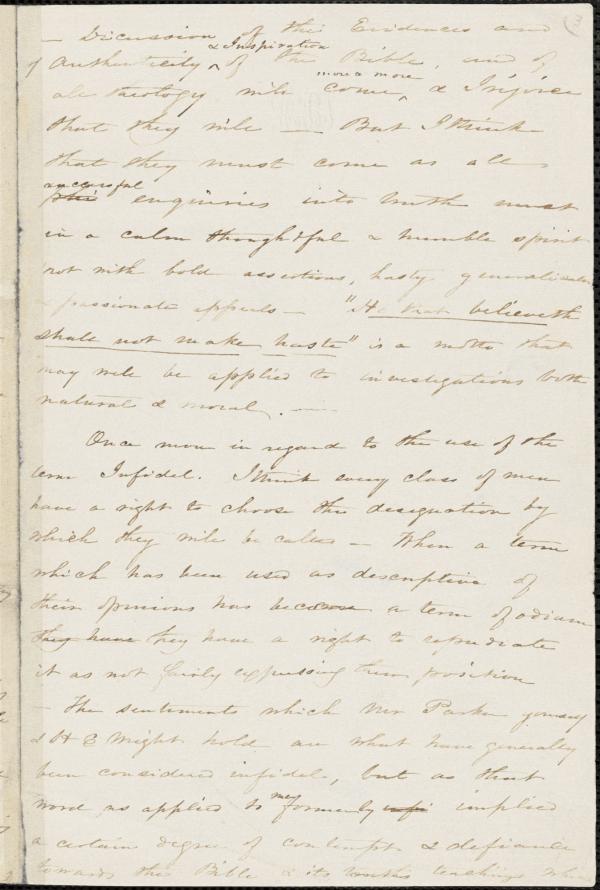 (3
— Discussion of the Evidences and
& Inspiration
of Authenticity ^ of the Bible, and of
more & more
all theology will come ^ & I rejoice
that they will — But I think
that they must come as all
successful
enquiries into truth must
in a calm thoughtful & humble spirit
not with bold assertions, hasty generalization
& passionate appeals — "He that believeth
shall not make haste" is a motto that
may well be applied to investigations both
natural & moral. —
Once more in regard to the use of the
term Infidel. I think every class of men
have a right to choose the designation by
which they will be called — When a term
which has been used as descriptive of
their opinions has become a term of odium
they have they have a right to repudiate
it as not fairly expressing their position
— The sentiments which Mr Parker yourself
& H C Wright hold are what have generally
been considered infidel, but as that
men
word as applied to ^ formerly implied
a certain degree of contempt & defiance
towards the Bible & its teachings